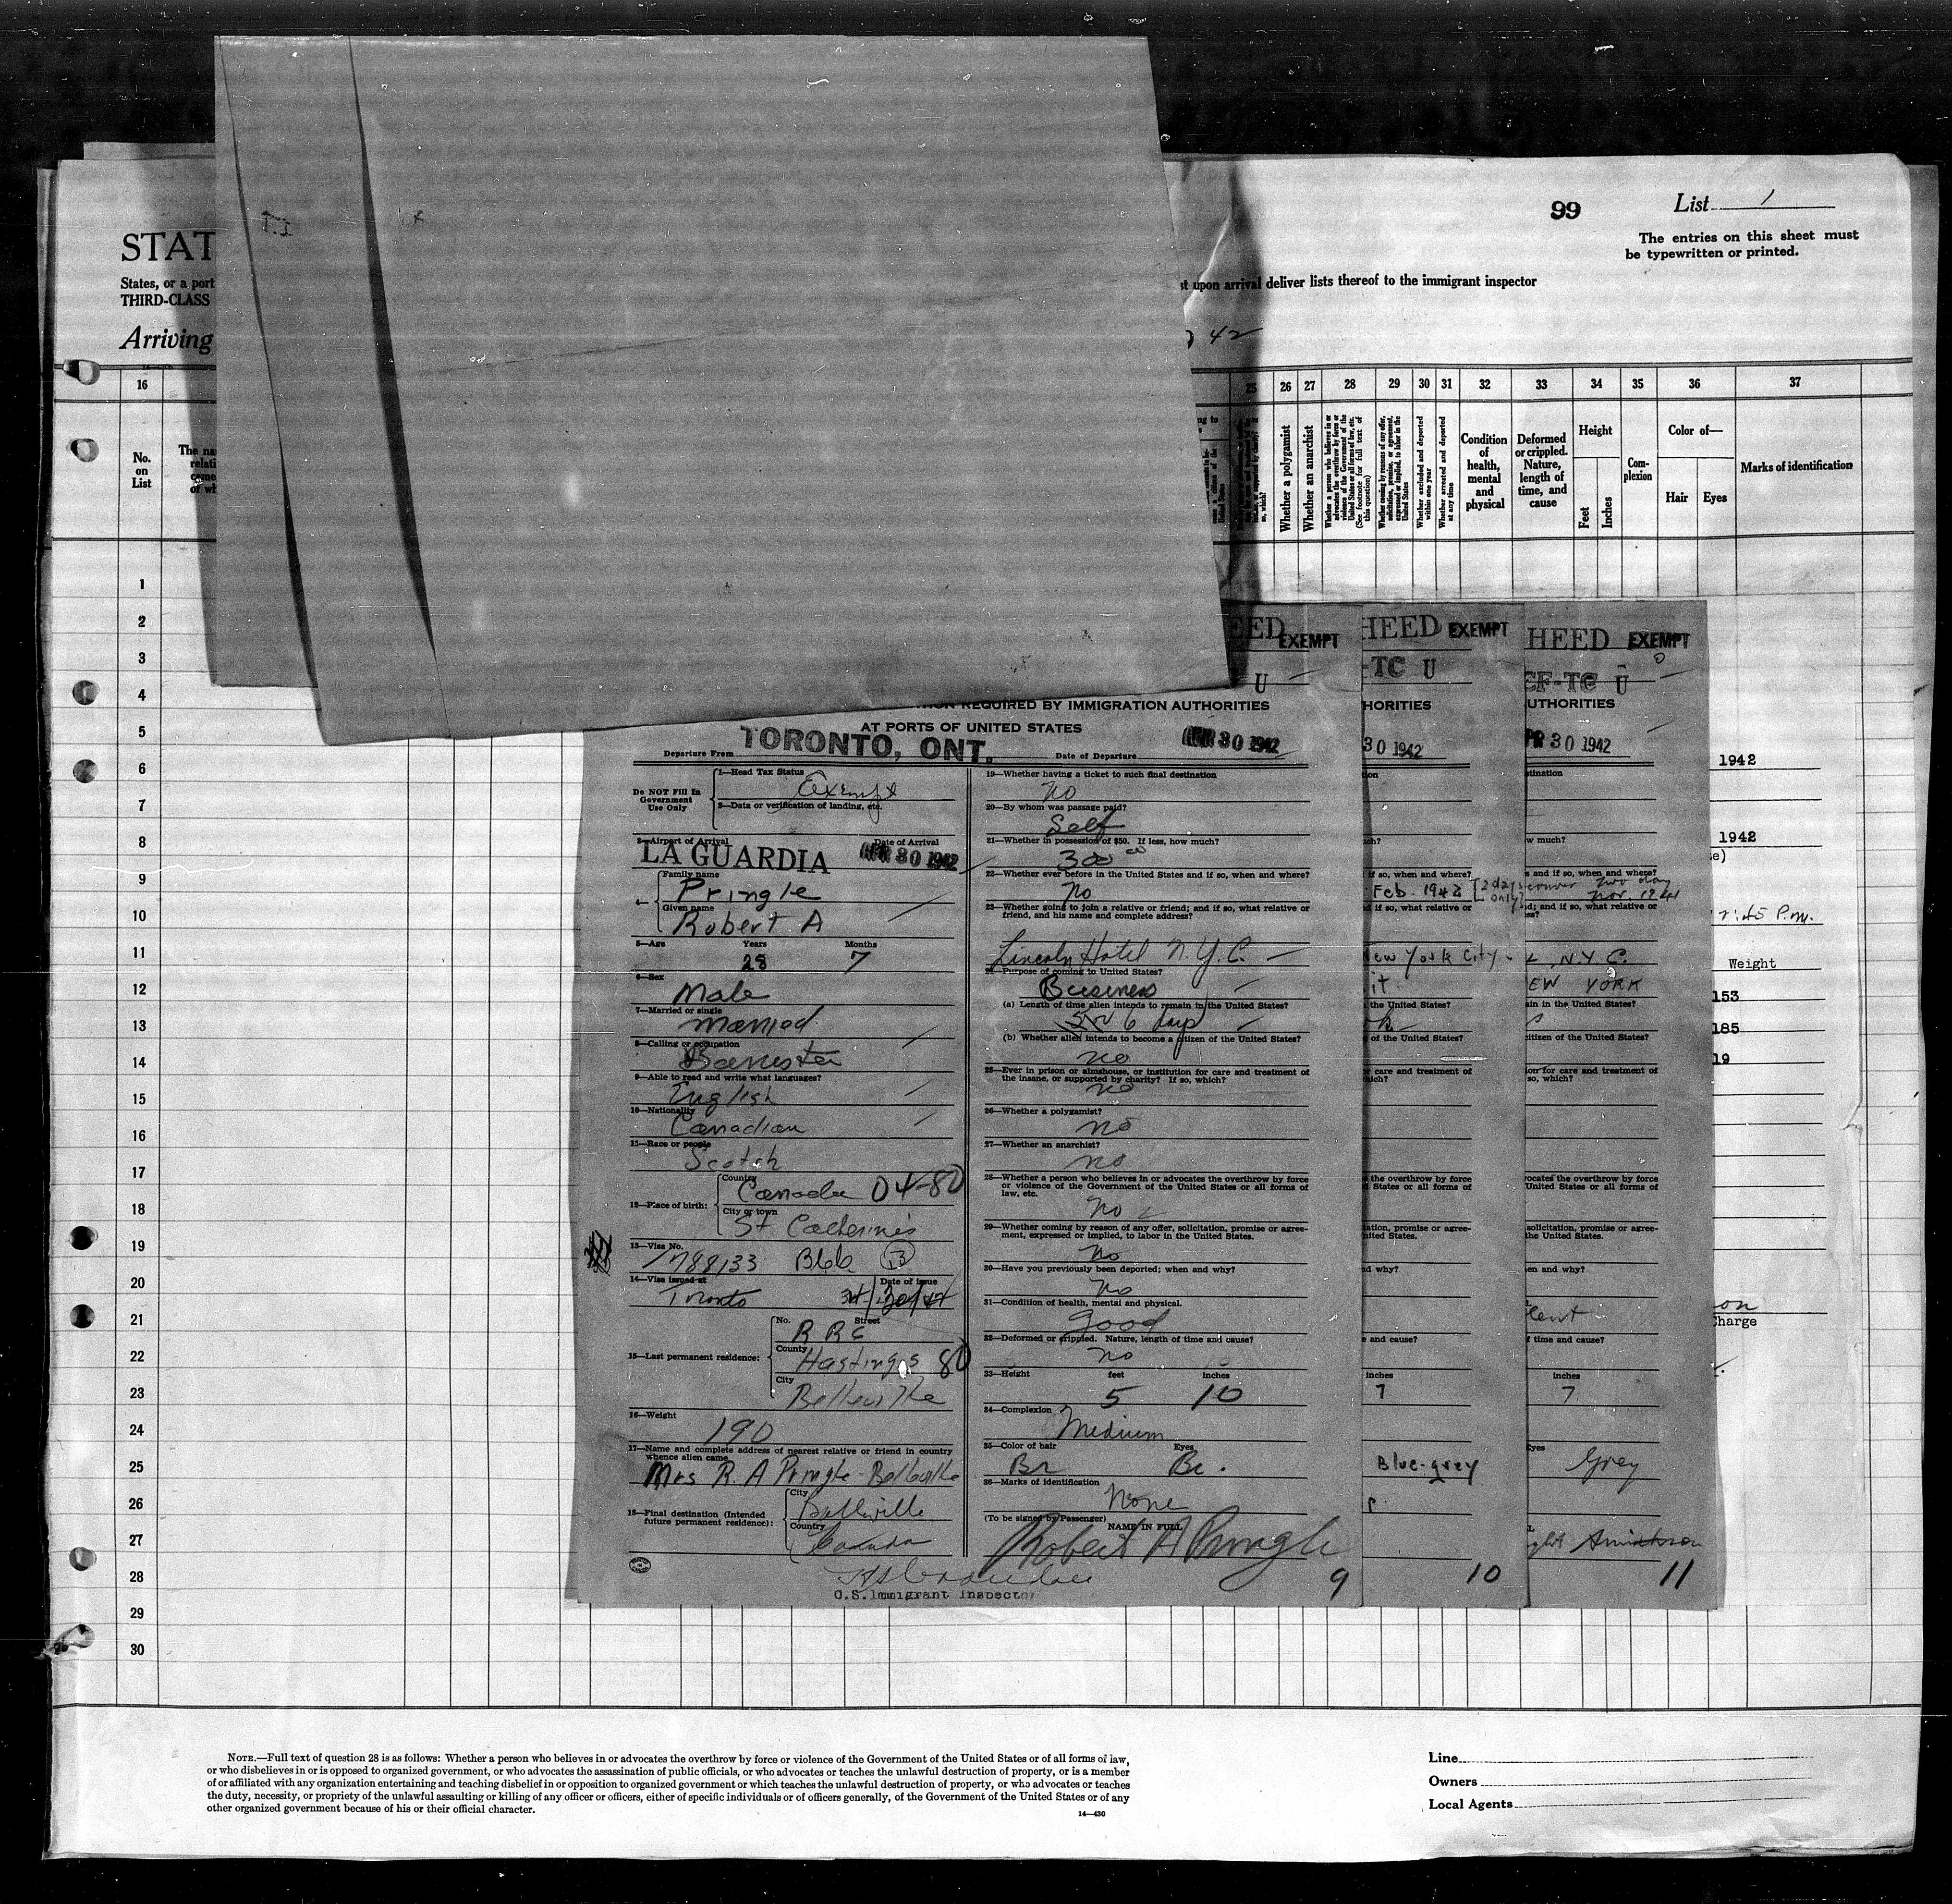 99
List 1
The entries on this sheet must
be typewritten or printed.
STAT
States, or a port
st upon arrival deliver lists thereof to the immigrant inspector
THIRD-CLASS
Arriving
42
16
25
26
27
28
29
30
31
32
33
34
35
36
37
No.
on
List
Whether a polygamist
Whether an anarchist
Whether a person who believes in or advocates the overthrow by force or violence of the Government of the United States or all forms of law, etc. (See footnote for full text of this question)
Whether coming by reasons of any offer, solicitation, promise, or agreement, expressed or implied, to labor in the United States
Whether excluded and deported within one year
Whether arrested and deported at any time
Condition
of
health,
mental
and
physical
Deformed
or crippled.
Nature,
length of
time, and
cause
Height
Feet
Inches
Com-
plexion
Color of—
Hair
Eyes
Marks of identification
1
2
3
4
5
6
7
8
9
10
11
12
13
14
15
16
17
18
19
20
21
22
23
24
25
26
27
28
29
30
EED EXEMPT
U
REQUIRED BY IMMIGRATION AUTHORITIES
AT PORTS OF UNITED STATES
Departure From TORONTO, ONT.
Date of Departure APR 30 1942
Do NOT Fill In
Government
Use Only
1—Head Tax Status
Exempt
2—Data or verification of landing, etc.
3—Airport of Arrival
Date of Arrival
LA GUARDIA APR 30 1942
4—
Family name
Pringle
Given name
Robert A
5—Age
Years
Months
28
7
6—Sex
Male
7—Married or single
married
8—Calling or occupation
Barrister
9—Able to read and write what languages?
English
10—Nationality
Canadian
11—Race or people
Scotch
12—Place of birth:
Country
Canada 04-80
City or town
St Catherines
13—Visa No.
1788133
14—Visa issued at
Date of issue
Toronto
15—Last permanent residence:
No.
Street
R R 6
County
Hastings 80
City
Belleville
16—Weight
190
17—Name and complete address of nearest relative or friend in country
whence alien came
Mrs R. A Pringle - Belleville
18—Final destination (Intended
future permanent residence):
City
Belleville
Country
Canada
19—Whether having a ticket to such final destination
no
20—By whom was passage paid?
Self
21—Whether in possession of $50. If less, how much?
300 00
22—Whether ever before in the United States and if so, when and where?
no
23—Whether going to join a relative or friend; and if so, what relative or
friend, and his name and complete address?
Lincoln Hotel N.Y.C.
24—Purpose of coming to United States?
Business
(a) Length of time alien intends to remain in the United States?
5 or 6 days
(b) Whether alien intends to become a citizen of the United States?
no
25—Ever in prison or almshouse, or institution for care and treatment of
the insane, or supported by charity? If so, which?
no
26—Whether a polygamist?
no
27—Whether an anarchist?
no
28—Whether a person who believes in or advocates the overthrow by force
or violence of the Government of the United States or all forms of
law, etc.
no
29—Whether coming by reason of any offer, solicitation, promise or agree-
ment, expressed or implied, to labor in the United States.
no
30—Have you previously been deported; when and why?
no
31—Condition of health, mental and physical.
Good
32—Deformed or crippled. Nature, length of time and cause?
no
33—Height
feet
inches
5
10
34—Complexion
Medium
35—Color of hair
Eyes
Br
Br.
36—Marks of identification
None
(To be signed by Passenger)
NAME IN FULL
Robert A Pringle
U.S. Immigrant Inspector
9
HEED EXEMPT
-TC U
HORITIES
30 1942
Feb. 1942 [2 days only]
if so, what relative or
New York City
the United States?
of the United States?
r care and treatment of
the overthrow by force
d States or all forms of
ation, promise or agree-
nited States.
d why?
e and cause?
inches
7
Blue-grey
10
HEED EXEMPT
CF-TC U
UTHORITIES
APR 30 1942
stination
w much?
s and if so, when and where?
Nov. 1941
nd; and if so, what relative or
N.Y.C.
EW YORK
ain in the United States?
citizen of the United States?
ion for care and treatment of
so, which?
vocates the overthrow by force
United States or all forms of
solicitation, promise or agree-
the United States.
en and why?
f time and cause?
inches
7
Eyes
Grey
11
1942
1942
se)
2:45 P.m.
Weight
153
185
19
Charge
NOTE.—Full text of question 28 is as follows: Whether a person who believes in or advocates the overthrow by force or violence of the Government of the United States or of all forms of law,
or who disbelieves in or is opposed to organized government, or who advocates the assassination of public officials, or who advocates or teaches the unlawful destruction of property, or is a member
of or affiliated with any organization entertaining and teaching disbelief in or opposition to organized government or which teaches the unlawful destruction of property, or who advocates or teaches
the duty, necessity, or propriety of the unlawful assaulting or killing of any officer or officers, either of specific individuals or of officers generally, of the Government of the United States or of any
other organized government because of his or their official character.
14—430
Line
Owners
Local Agents